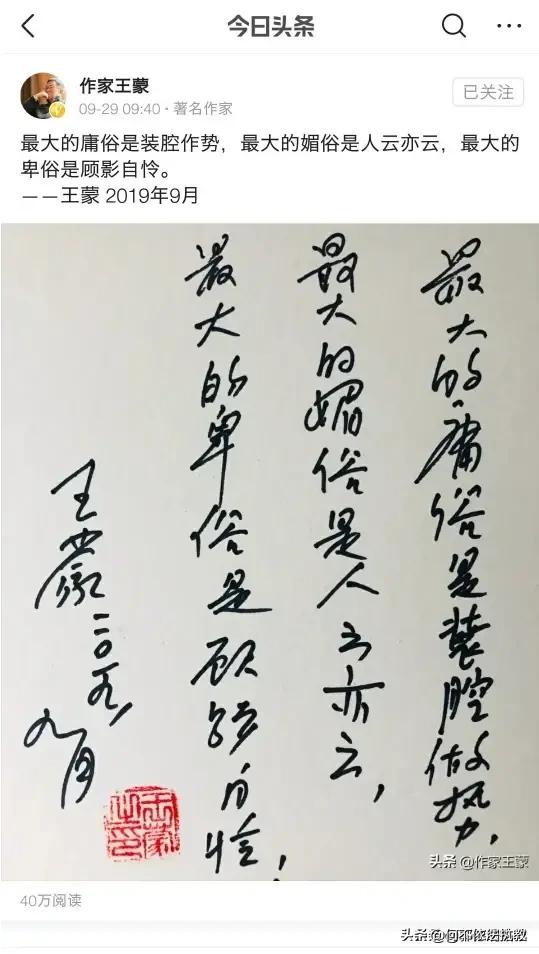 今日头条
作家王蒙
09-29 09:40·著名作家
已关注
最大的庸俗是装腔作势，最大的媚俗是人云亦云，最大的
卑俗是顾影自怜。
——王蒙 2019年9月
最大的庸俗是装腔做势，
最大的媚俗是人云亦云，
最大的卑俗是顾影自怜，
王蒙二〇一九，
九月
王蒙之印
头条 @作家王蒙
40万阅读